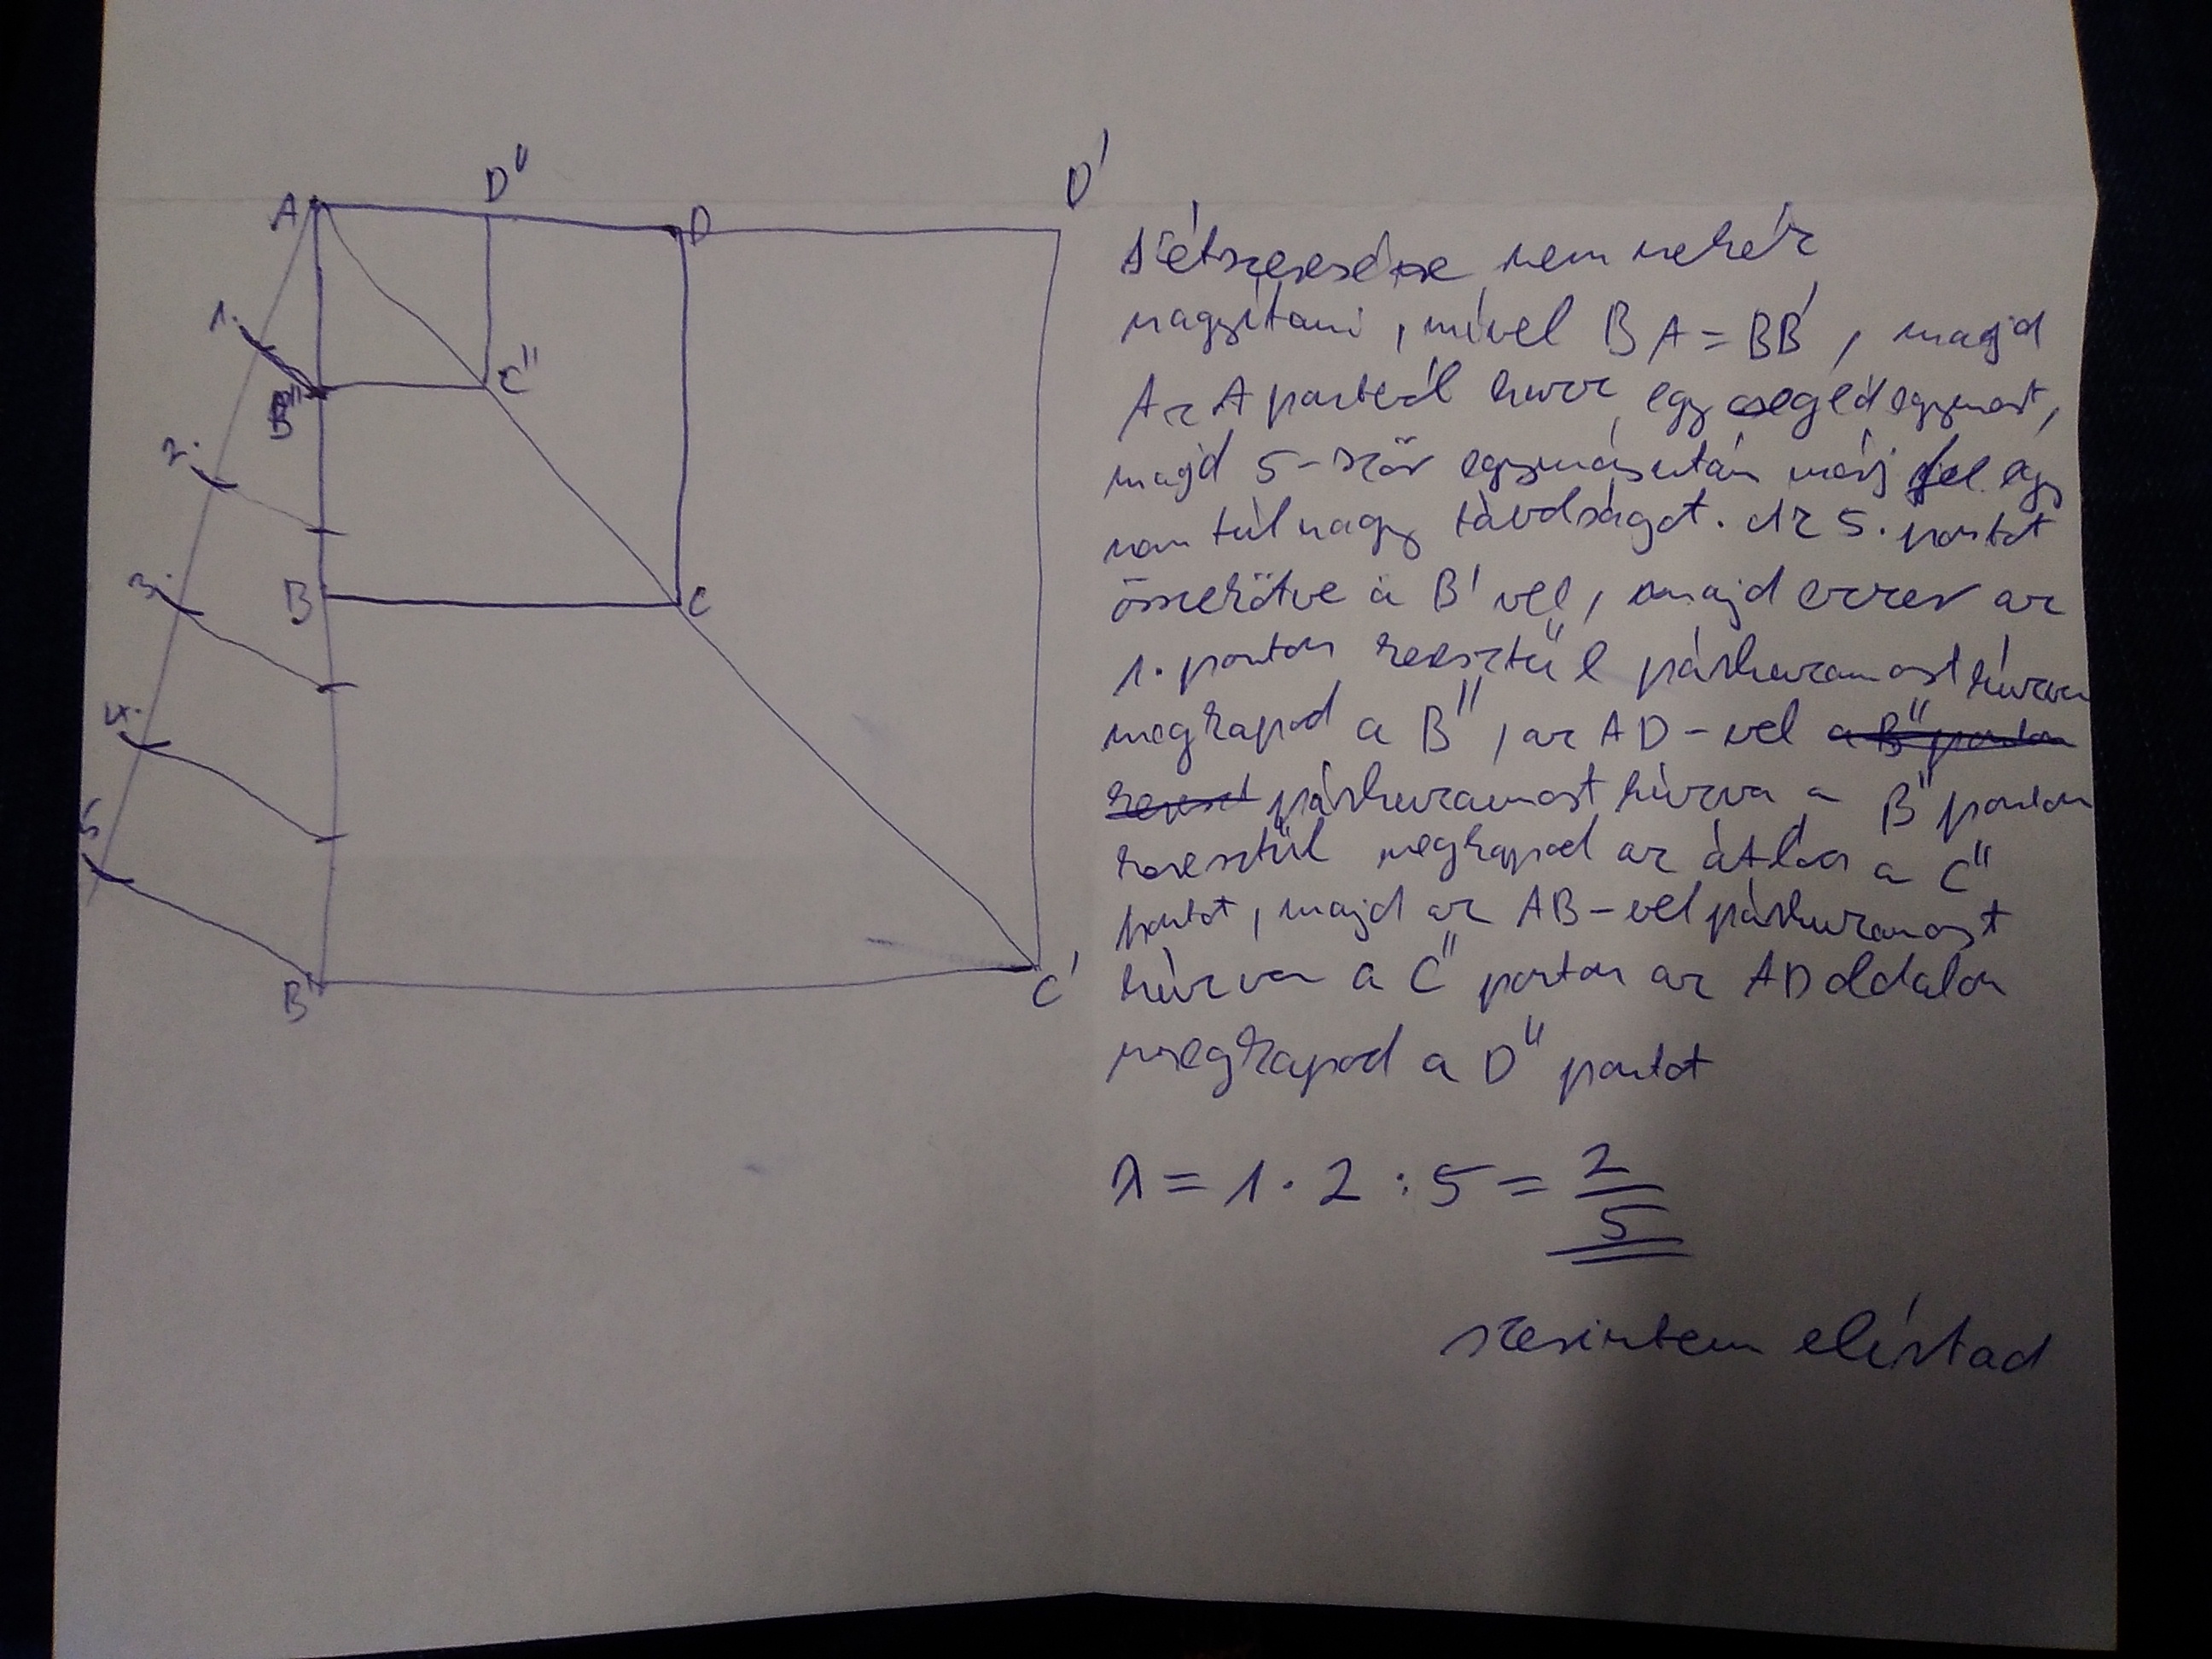 A
D"
D
D'
1.
B"
C"
2.
3.
B
C
4.
5
B'
C'
kétszeresére nem nehéz
nagyítani, mivel BA = BB', majd
Az A pontból húzz egy segédegyenest,
majd 5-ször egymásután mérj fel egy
nem túl nagy távolságot. Az 5. pontot
összekötve a B' vel, majd ezzel az
1. ponton keresztül párhuzamost húzva
megkapod a B", az AD-vel a B" ponton
kereszt párhuzamost húzva a B" ponton
keresztül megkapod az átlón a C"
pontot, majd az AB-vel párhuzamost
húzva a C" ponton az AD oldalon
megkapod a D" pontot
λ = 1 · 2 : 5 = 2/5
szerintem elírtad